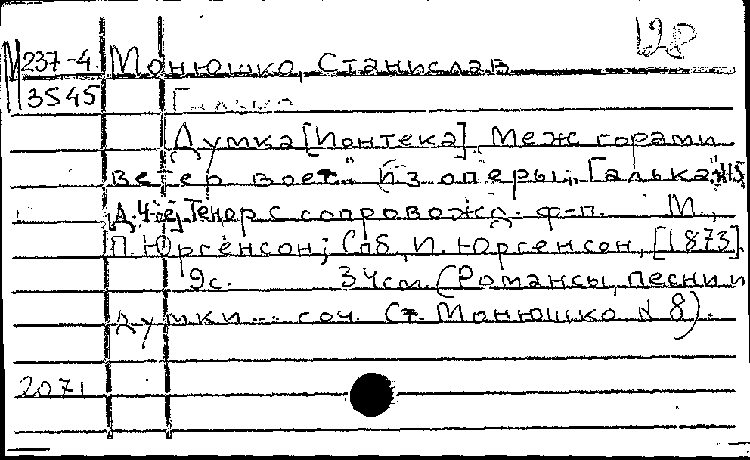 128
М 237-4. Монюшко, Станислав
3545 Галька
Думка [Ионтека] „Меж горами
ветер воет." (Из оперы „Галька",
д. 4-ое). Тенор с сопровожд. ф-п. М.,
П. Юргенсон; Спб, И. Юргенсон, [1873].
9с. 34см. (Романсы, песни и
думки... соч. Ст. Монюшко N 8).
2071